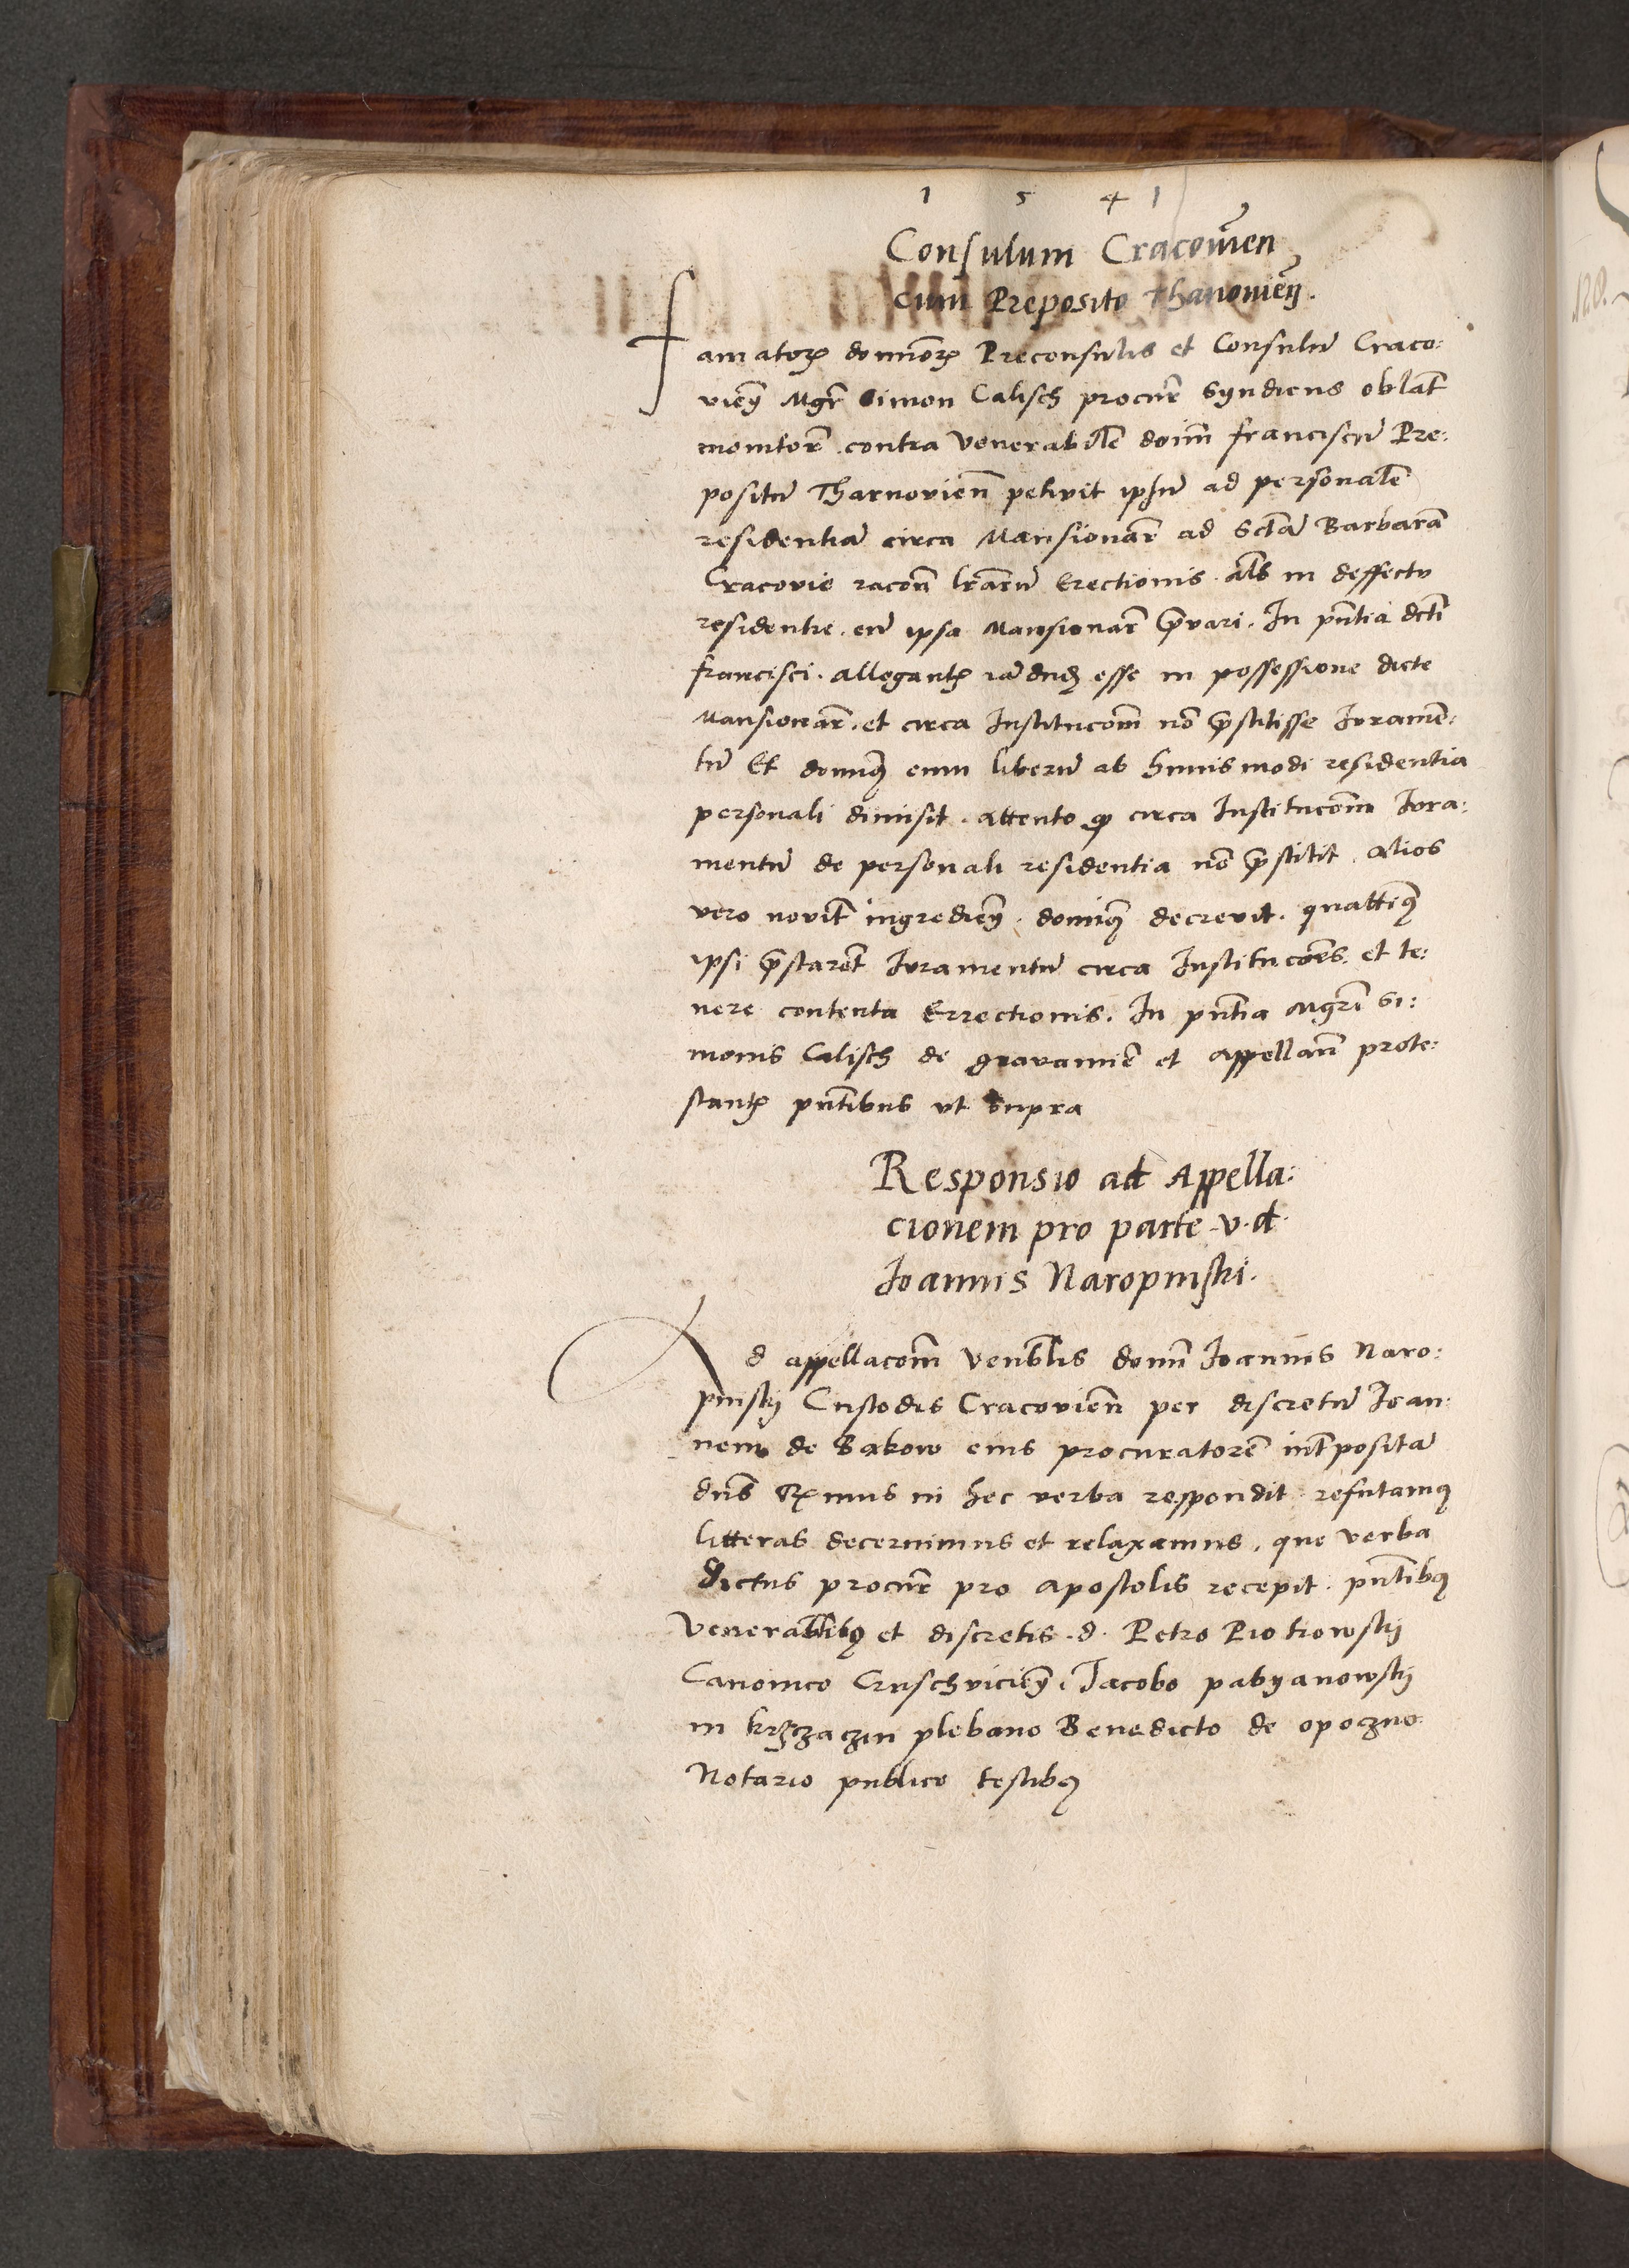 1 5 4 1
Consulum Cracovien̄
cum Preposito Thanovien̄.
Famatorꝝ dominorꝝ Preconsulis et Consulū Craco:
vien̄ Mgr̄ Simon Calisch procur̄ Syndicus oblat̄
monitor̄ contra Venerabilē domī Franciscū Pre:
positū Tharnovien̄ petivit ipsū ad personalē
residentiā circa Mansionar̄ ad Sctā Barbarā
Cracovie racon̄ lrarū Erectionis. als in deffectu
residentie. eū ipsa Mansionar̄ p̄vari. In pn̄tia dcti
Francisci. allegantꝭ esse in possessione dicte
Mansionar̄. et circa Institucōm nō p̄stitisse Iuramē:
tū Et dominꝰ eum liberū ab huiusmodi residentia
personali dimisit. attento ꝙ circa Institucōm Iura:
mentū de personali residentia nō p̄stitit. Alios
vero novit̄ ingredien̄. dominꝰ decrevit. quattinꝰ
ipsi p̄starēt Iuramentū circa Institucōes. et te:
nere contenta Errectionis. In pn̄tia Mgrī Si:
monis Calisch de gravamīe et appellan̄ prote:
stantꝭ pn̄tibus vt supra
Responsio ad Appella:
cionem pro parte v. d.
Ioannis Naropinski.
Ad appellacōm venblis domī Ioannis Naro:
pinskij Custodis Cracovien̄ per discretū Ioan:
nem de Bakow eius procuratorē int̄positā
dn̄s Rꝭmus in hec verba respondit refutamꝰ
litteras decernimus et relaxamus. que verba
dictus procur̄ pro apostolis recepit. pn̄tibꝰ
Venerablibꝰ et discretis. d. Petro Piotrowskij
Canonico Cruschvicien̄. Iacobo pabyanowskij
in plebano Benedicto de opoczno
Notario publico testibꝰ